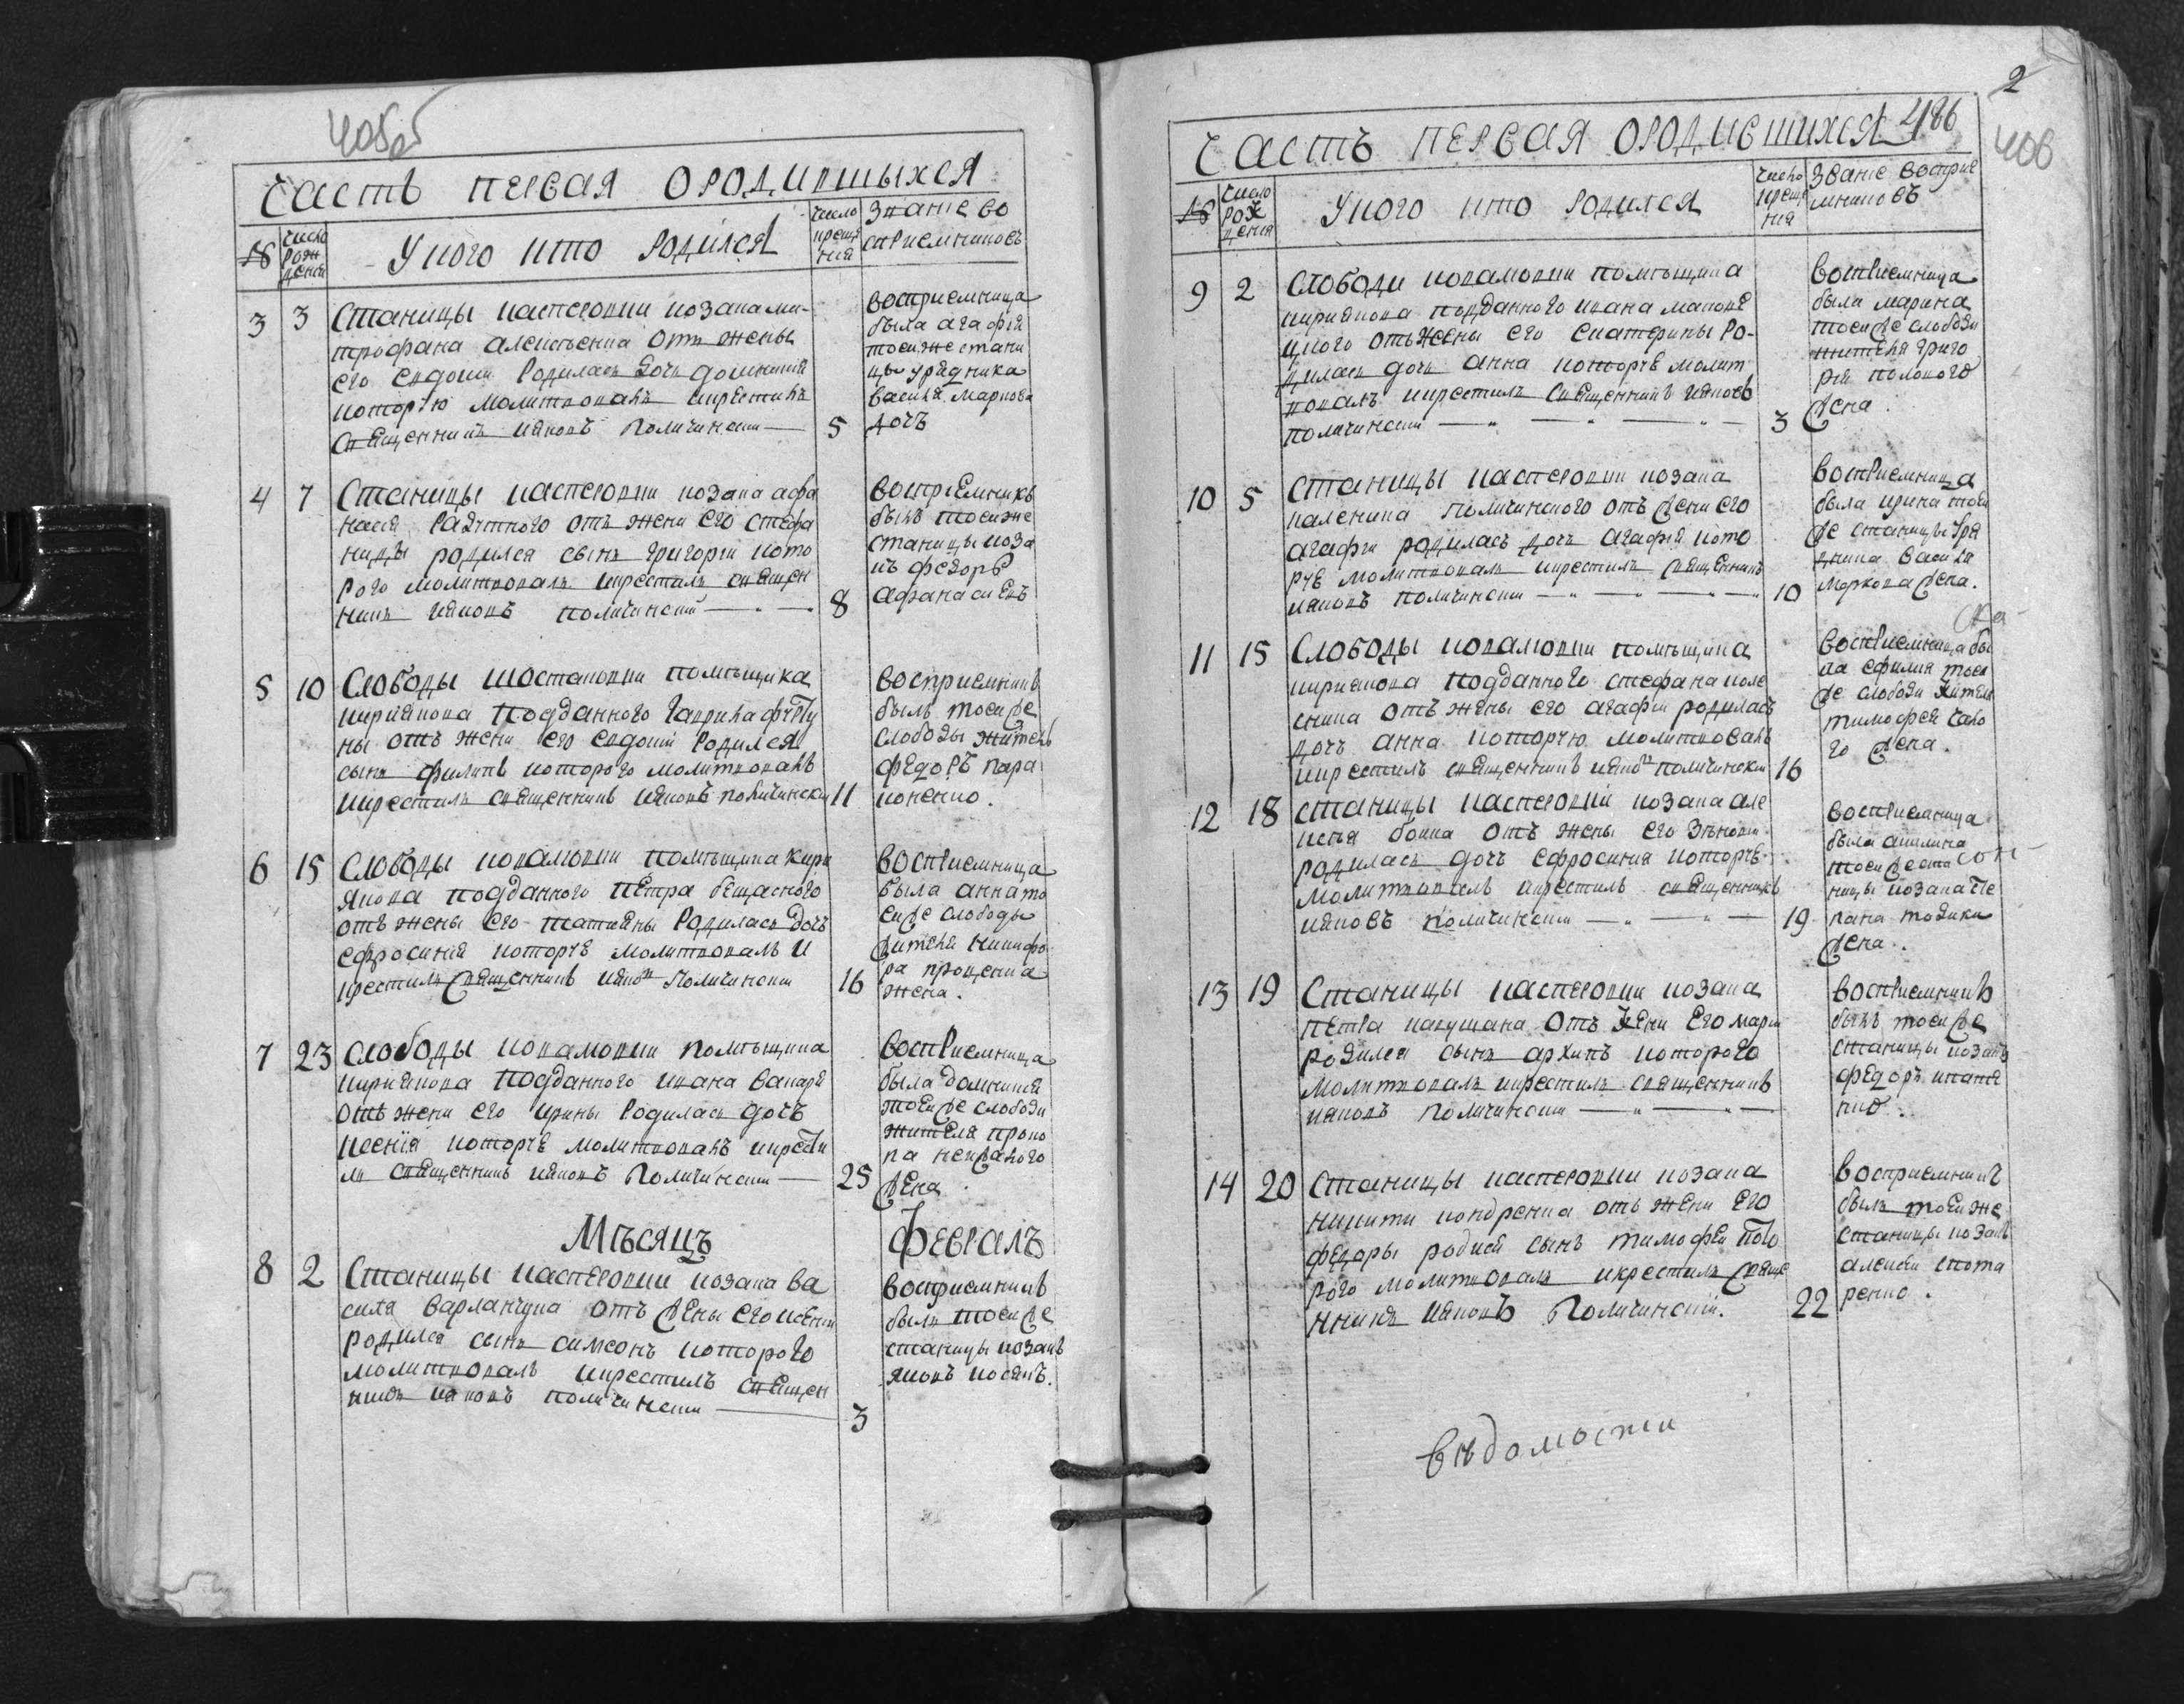 ЧАСТЬ ПЕРВАЯ ОРОДИВШЫХСЯ
№
число рождения
У кого кто родился
число крещения
Звание восприемниковъ
3 3 Станицы касперовки козака ми-
трофана алексѣенка отъ жены
его евдокии Родилась дочь домникия
которую молитвовалъ икрестилъ
священникъ ияковъ Поличински 5
восприемница
была агафия
тоеиже стани
цы урядника
василя маркова
дочъ
4 7 Станицы касперовки козака афа
насия отъ жени его стефа
ниды родился сынъ григорги кото
рого молитвовалъ икрестилъ священ
никъ ияковъ поличинский 8
восприемникъ
былъ тоеиже
станицы коза
къ федоръ
5 10 Слободы шостаковки помѣщика
кириякова подданного гаврила
отъ жени его евдокий Родился
сынъ филипъ которого молитвовалъ
икрестилъ священникъ ияковъ поличински 11
восприемникъ
былъ тоеиже
слободы житель
федоръ пара
коненко.
6 15 Слободы ковалювки помѣщика кири
якова подданного петра бещасного
отъ жены его татияны Родилась дочь
ефросиния которую молитвовалъ и
крестилъ священникъ ияковъ Поличински 16
восприемница
была анна то
еиже слободы
жителя никифо
ра проценка
жена.
7 23 слободы ковалювки помѣщика
кириякова подданного ивана
отъ жени его ирины Родилась дочъ
ксения которую молитвовалъ икрести
лъ священникъ ияковъ Поличински 25
восприемница
была домникия
тоеиже слободи
жителя проко
па
жена.
Мѣсяцъ февралъ
8 2 Станицы касперовки козака ва
силя варланчука отъ жены его ксении
родился сынъ симеонъ которого
молитвовалъ икрестилъ священ
никъ ияковъ поличински 3
восприемникъ
былъ тоеиже
станицы козакъ
яковъ
2
ЧАСТЬ ПЕРВАЯ ОРОДИВШИХСЯ 486
406
№
число рождения
У кого кто родился
число крещения
Звание восприемниковъ
9 2 слободи ковалювки помѣщика
кириякова подданного ивана
отъ жены его екатерины Ро-
дилась дочь анна которую молит
вовалъ икрестилъ священникъ ияковъ
поличински 3
восприемница
была марина
тоеиже слободи
жителя григо
рия
жена.
10 5 станицы касперовки козака
каленика поличинского отъ жени его
агафги родилась дочь агафия кото
рую молитвовалъ икрестилъ священникъ
ияковъ поличински 10
восприемница
была ирина тоеи
же станицы уря
дника василя
маркова жена.
11 15 Слободы ковалювки помѣщика
кириякова подданного стефана
отъ жены его агафии родилась
дочь анна которую молитвовалъ
икрестилъ священникъ ияковъ поличински 16
восприемница бы
ла тоеи
же слободи жителя
тимофея
жена.
12 18 станицы касперовки козака але
ксѣя бойка отъ жены его
родилась дочь ефросиния которую
молитвовалъ икрестилъ священникъ
ияковъ поличински 19
восприемница
была акилина
тоеиже ста
ницы козака
жена.
13 19 Станицы касперовки козака
петра отъ жени его марии
родился сынъ архипъ которого
молитвовалъ икрестилъ священникъ
ияковъ поличински
восприемникъ
былъ тоеиже
станицы козакъ
федоръ
14 20 Станицы касперовки козака
никити кондренка отъ жени его
федоры родися сынъ тимофей кото
рого молитвовалъ икрестилъ свяще
нникъ ияковъ Поличинский. 22
восприемникъ
былъ тоеиже
станицы козакъ
алексѣй
вѣдомости